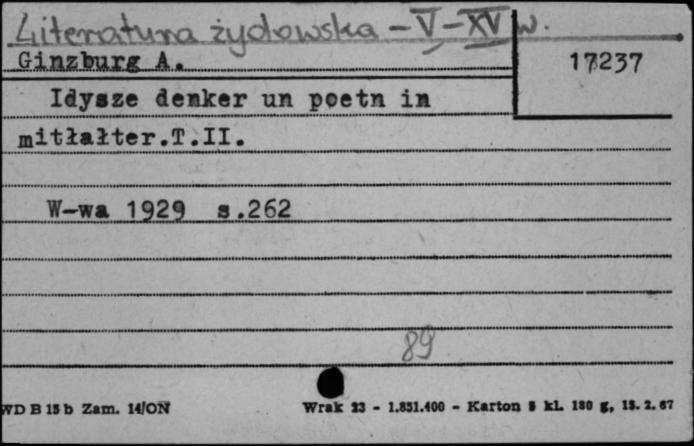 Literatura żydowska - V - XV w.
Ginzburg A.
17237
Idysze denker un poetn in
mitłałter.T.II.
W-wa 1929 s.262
89
WD B 15 b Zam. 14/ON
Wrak 23 - 1.851.400 - Karton 5 kl. 180 g, 15.2.67